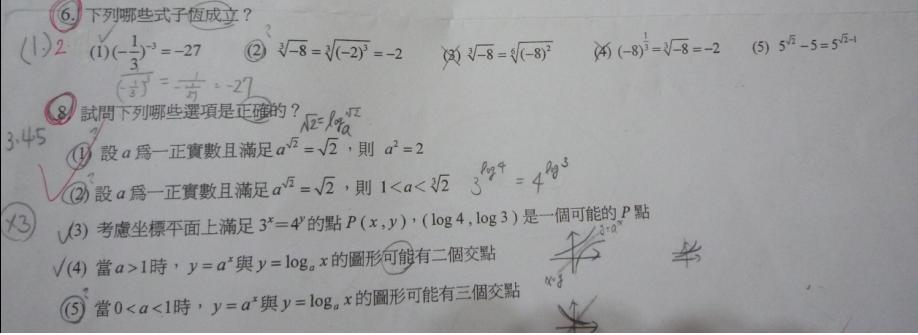 6. 下列哪些式子恆成立?
(1) 2 (1) (-1/3)^{-3} = -27 (2) ∛-8 = ∛(-2)³ = -2 (3) ∛-8 = ⁶√(-8)² (4) (-8)^{1/3} = ∛-8 = -2 (5) 5^{√2} - 5 = 5^{√2-1}
1/(-1/3)³ = 1/(-1/27) = -27
8. 試問下列哪些選項是正確的?
√2 = log_a √2
3.4.5
(1) 設 a 為一正實數且滿足 a^{√2} = √2,則 a² = 2
(2) 設 a 為一正實數且滿足 a^{√2} = √2,則 1 < a < ∛2 3^{log 4} = 4^{log 3}
×3 (3) 考慮坐標平面上滿足 3^x = 4^y 的點 P(x, y),(log 4, log 3) 是一個可能的 P 點
(4) 當 a > 1 時,y = a^x 與 y = log_a x 的圖形可能有二個交點
y = a^x
x=y
(5) 當 0 < a < 1 時,y = a^x 與 y = log_a x 的圖形可能有三個交點